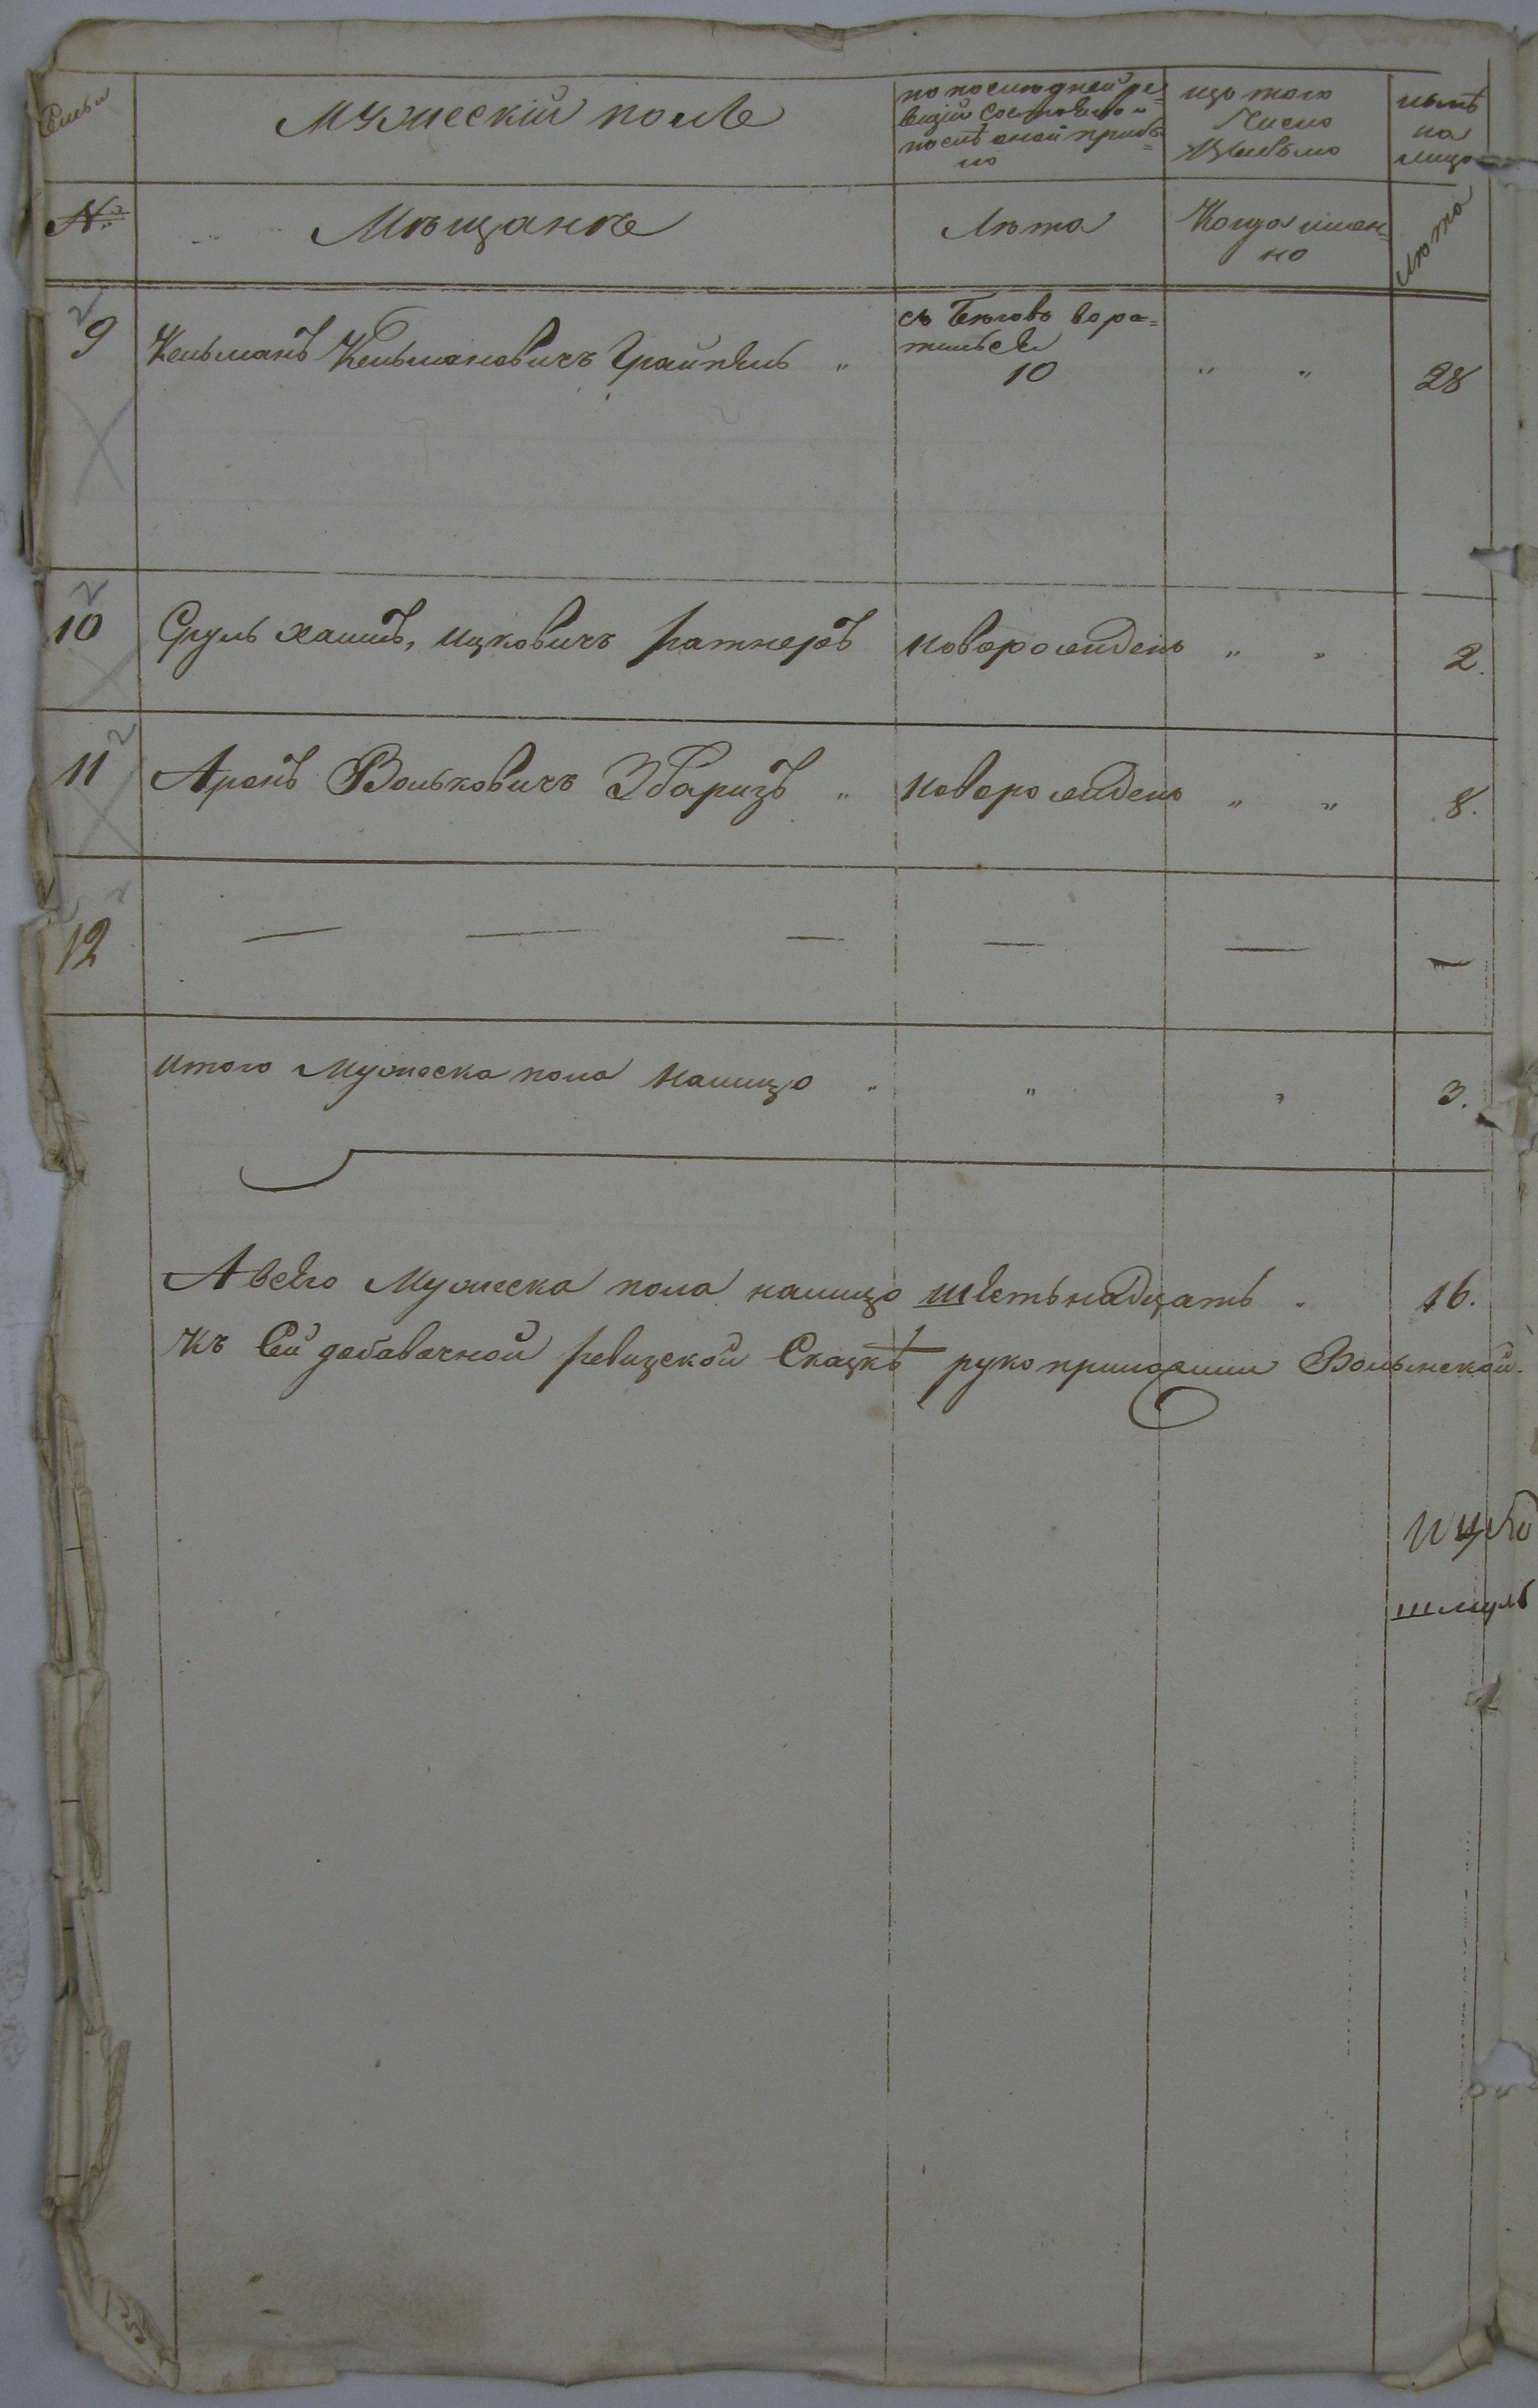 Семьи
Мужескій полъ
по последней ре=
визіи состояло и
послѣ оной прибы=
ло
изъ того
Число
Выбыло
нынѣ
на
лицо
№
Мѣщанъ
Лѣта
Когда имен=
но
Лѣта
2
9 Кельманъ Кельмановичъ Грайпель "
съ Бѣговъ вора=
тилься
10 " " 28
2
10 Сруль хаимъ, ицковичъ ратнеръ новорожденъ " " 2.
2
11 Аронъ Вольковичъ Збаризъ " новорожденъ " " 8.
2
12 — — — — — —
Итого Мужеска пола налицо " " " 3.
А всѣго Мужеска пола налицо шестьнадцать . 16.
Къ Сей добавочной ревизской Сказкѣ руко приложили Волынской
Ицко
шмуль